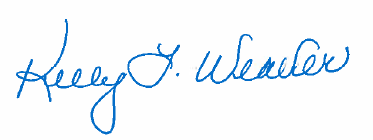 Kelly F. Weaver